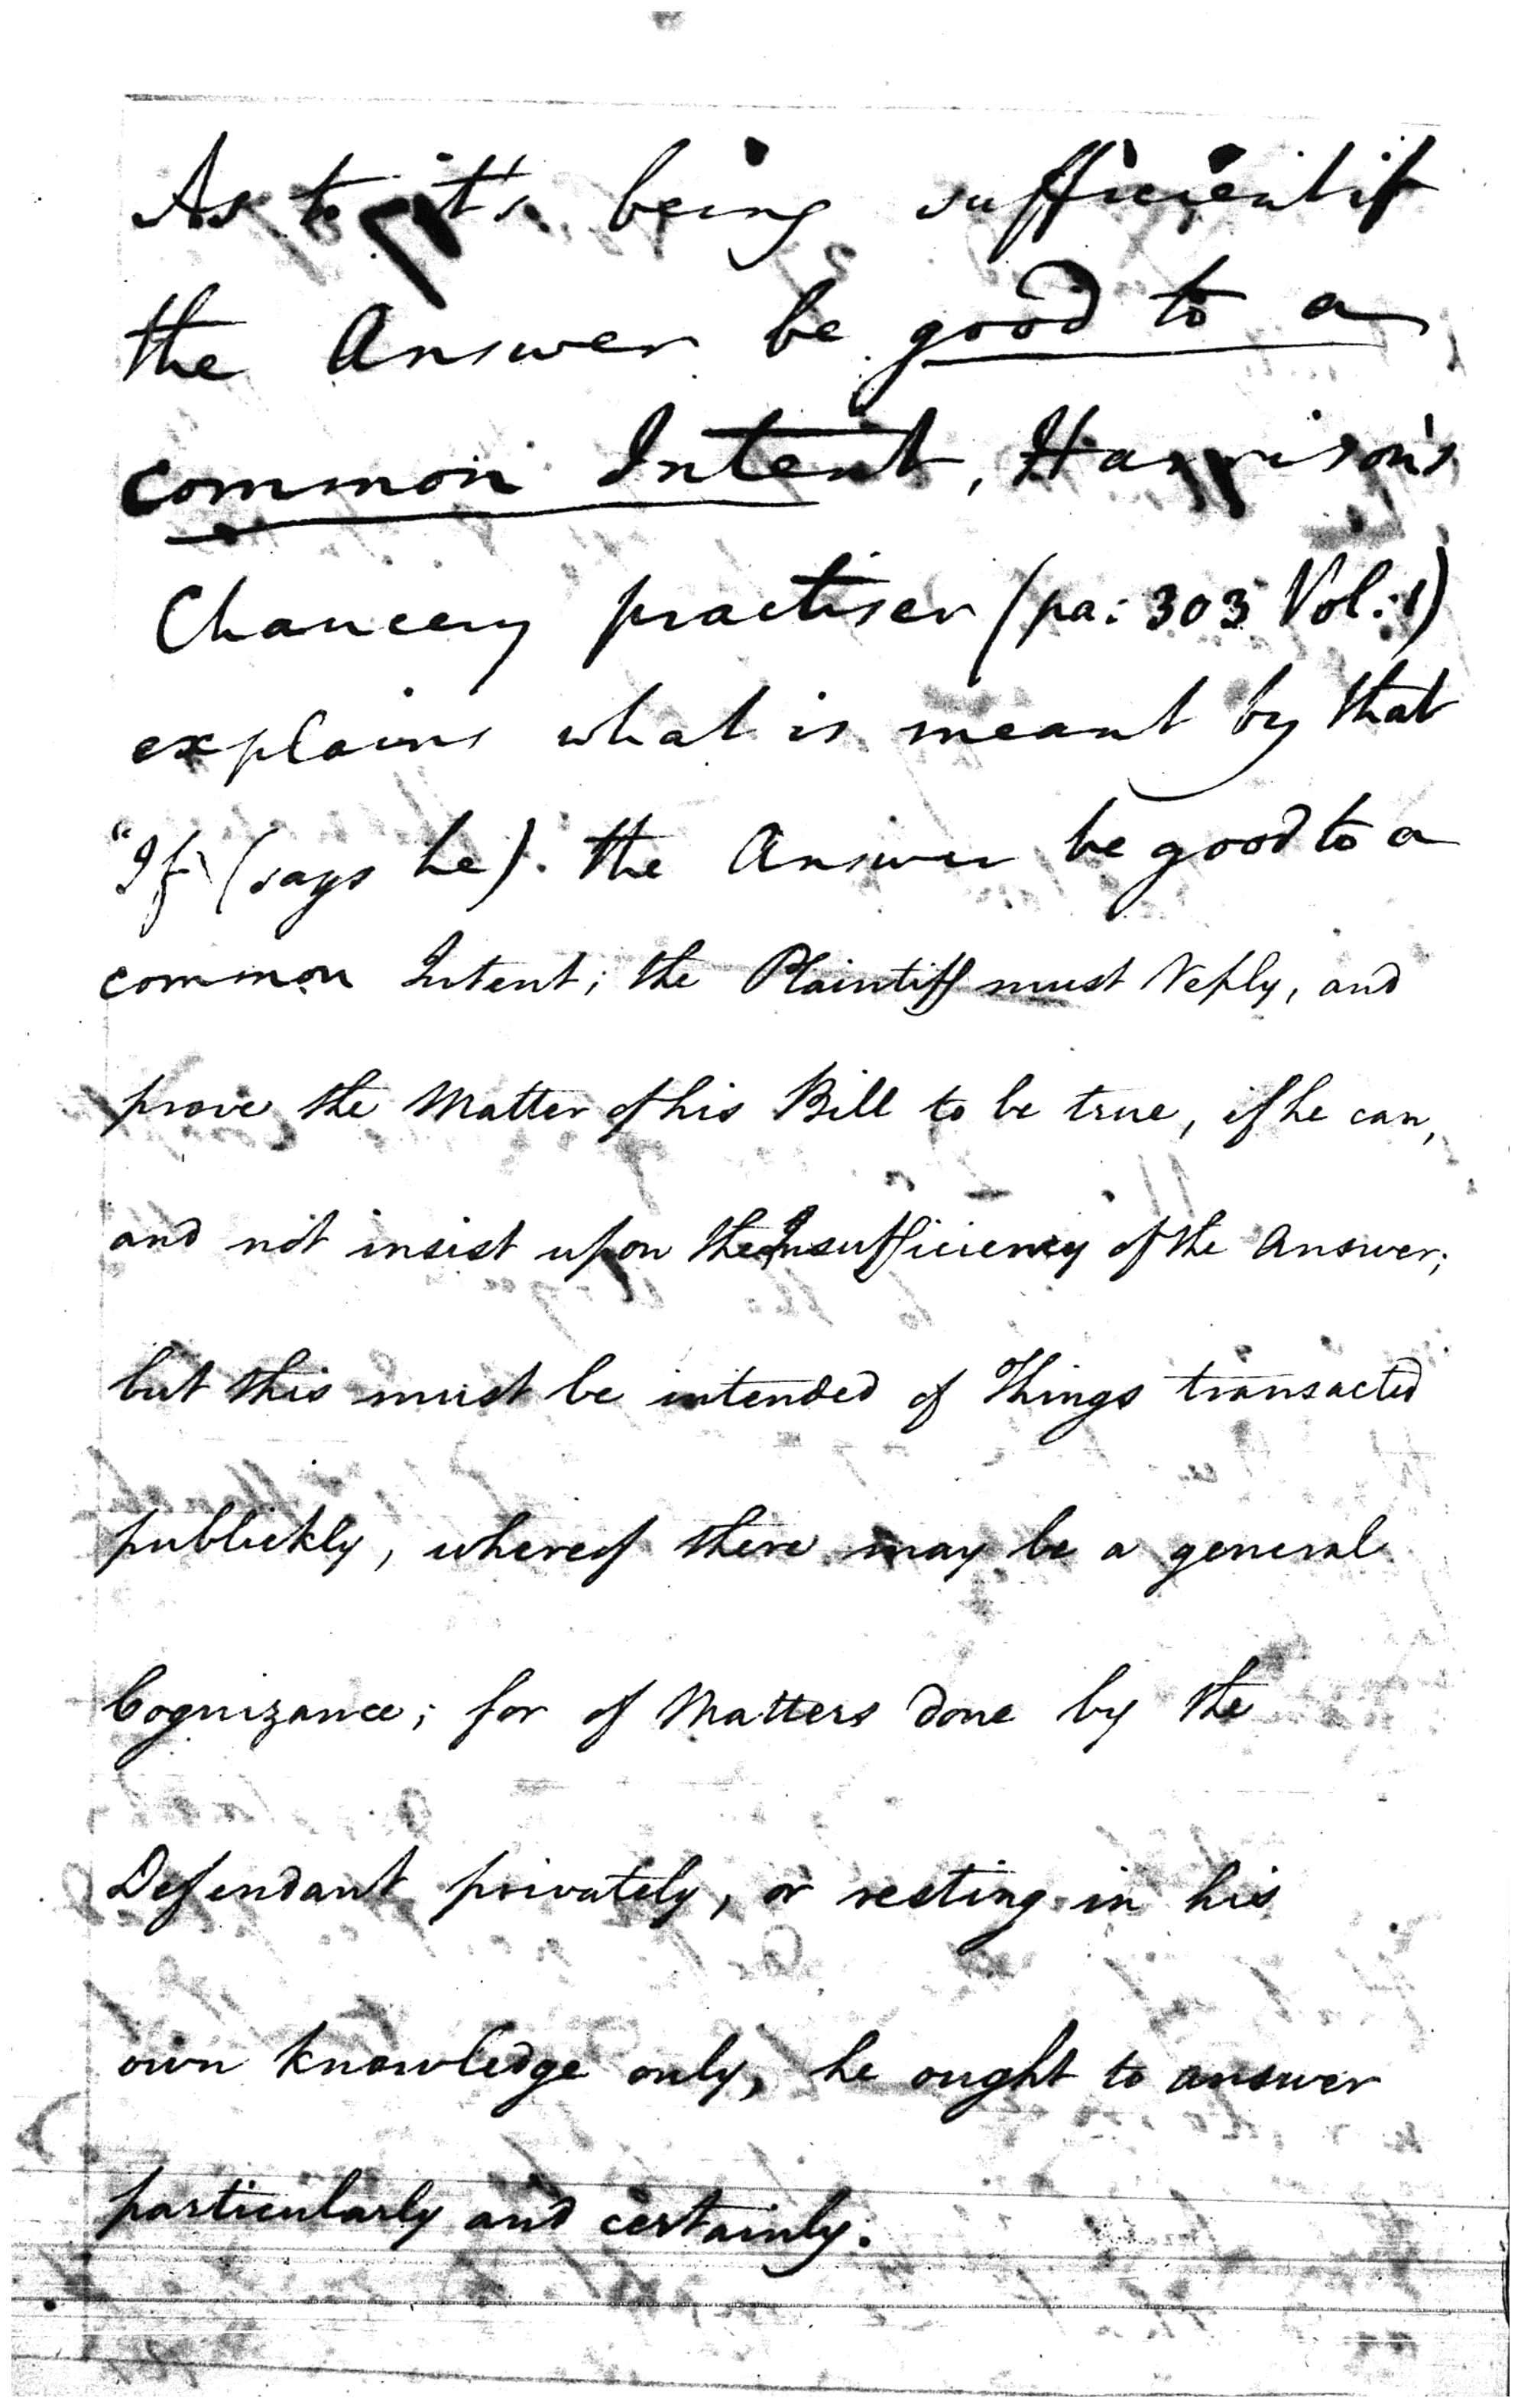 As to it's being sufficient if
the Answer be good to a
common Intent, Harrison's
Chancery practiser (pa: 303 Vol: 1)
explains what is meant by that
"If (says he) the Answer be good to a
common Intent; the Plaintiff must Reply, and
prove the Matter of his Bill to be true, if he can,
and not insist upon the Insufficiency of the Answer;
but this must be intended of Things transacted
publickly, whereof there may be a general
Cognizance; for of Matters done by the
Defendant privately, or resting in his
own knowledge only, he ought to answer
particularly and certainly.